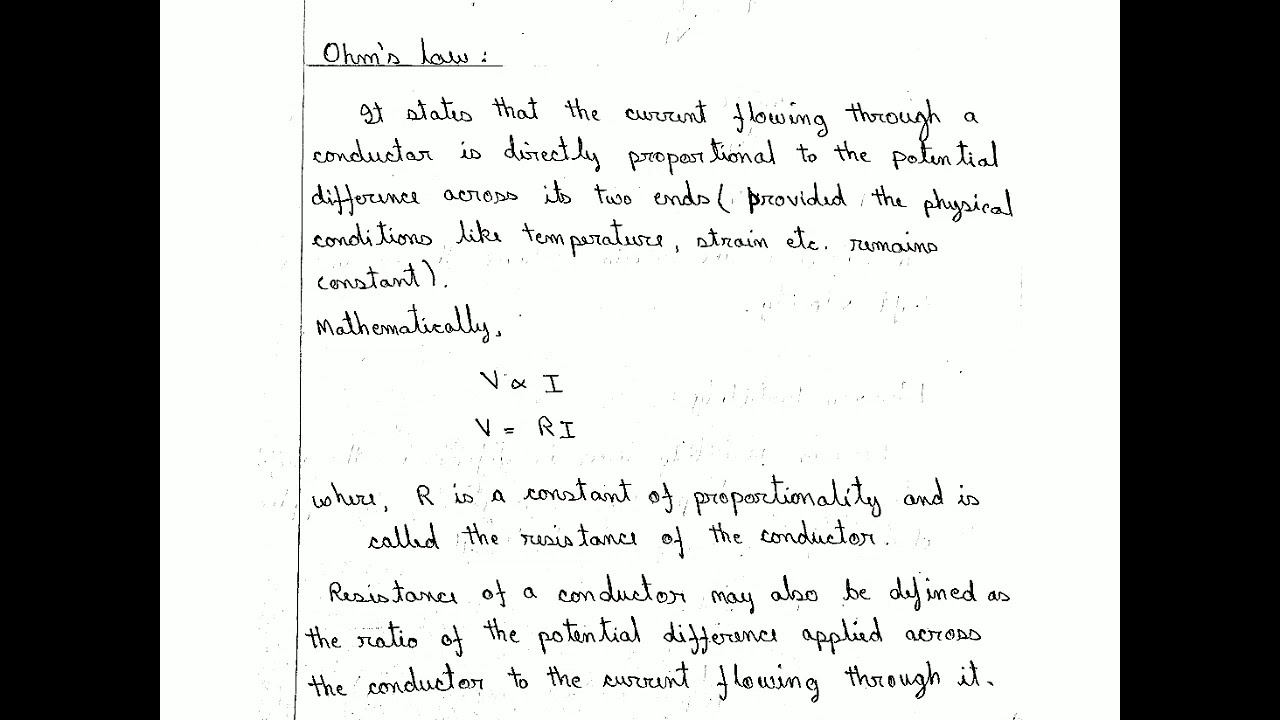 Ohm's law :
It states that the current flowing through a
conductor is directly proportional to the potential
difference across its two ends ( provided the physical
conditions like temperature, strain etc. remains
constant ).
Mathematically,
V ∝ I
V = RI
where, R is a constant of proportionality and is
called the resistance of the conductor.
Resistance of a conductor may also be defined as
the ratio of the potential difference applied across
the conductor to the current flowing through it.